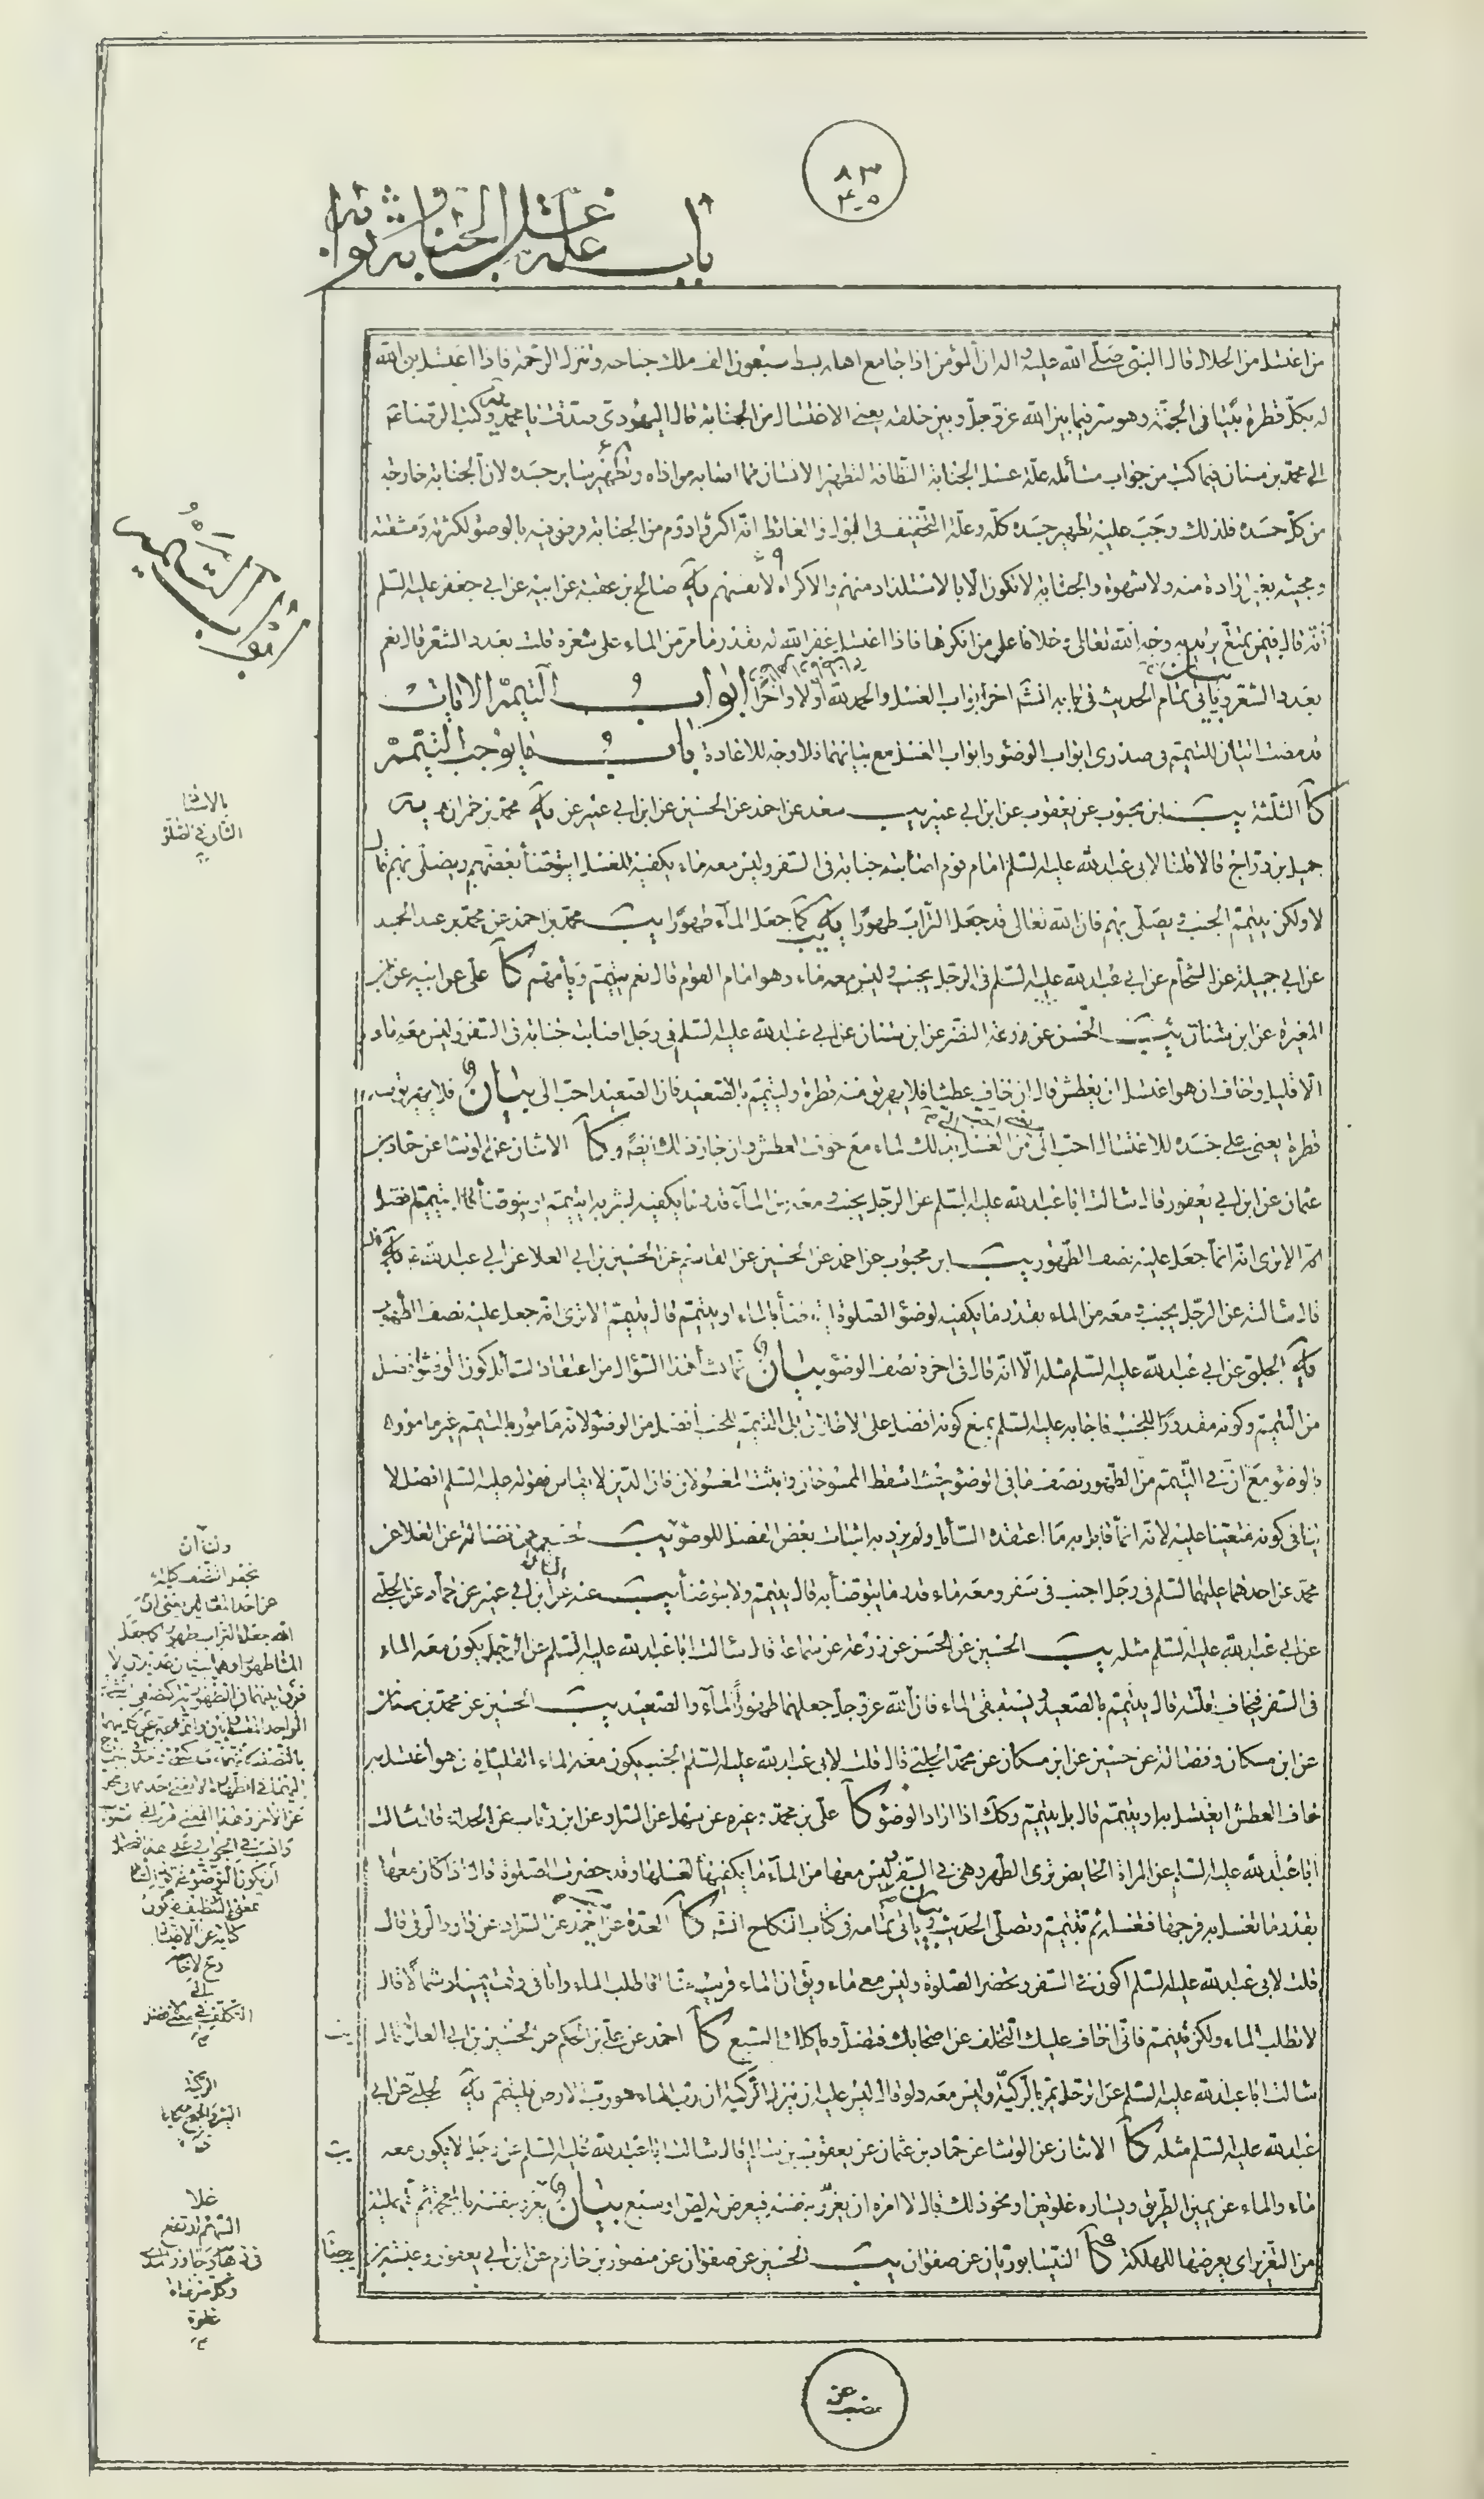 ٨٣
٤٠٥
باب علة غسل الجنابة وثوابه
من اغتسل من الحلال قال النبي صلى الله عليه واله ان المؤمن اذا جامع اهله بسط سبعون الف ملك جناحه وتنزل الرحمة فاذا اغتسل بنى الله
له بكل قطرة بيتا في الجنة وهو ستر فيما بين الله عز وجل وبين خلقه يعني الاغتسال من الجنابة قال اليهودي صدقت يا محمد وكتب الرضا ع
الى محمد بن سنان فيما كتب من جواب مسائله علة غسل الجنابة النظافة لتطهير الانسان مما اصابه من اذاه وتطهير سائر جسده لان الجنابة خارجة
من كل جسده فلذلك وجب عليه تطهير جسده كله وعلة التخفيف في البول والغائط انه اكثر وادوم من الجنابة فرضي فيه بالوضوء لكثرته ومشقته
ومجيئه بغير ارادة منه ولا شهوة والجنابة لا تكون الا بالاستلذاذ منهم والاكراه لانفسهم يه صالح بن عقبة عن ابيه عن ابي جعفر عليه السلم
انه قال فيمن تمتع يريد به وجه الله تعالى وخلافا على من انكرها فاذا اغتسل غفر الله له بقدر ما مر من الماء على شعره قلت بعدد الشعر قال نعم
بعدد الشعر وياتي تمام الحديث في بابه انشم اخر ابواب الغسل والحمد لله اولا واخرا ابواب التيمم الايات
قد مضت ايتان للتيمم في صدري ابواب الوضوء وابواب الغسل مع بيانهما فلا وجه للاعادة باب ما يوجب التيمم
كا الثلثة يب ابن محبوب عن يعقوب عن ابن ابي عمير يب سعد عن احمد عن الحسين عن ابن ابي عمير عن يه محمد بن حمران و يه
جميل بن دراج قالا قلنا لابي عبد الله عليه السلم امام قوم اصابته جنابة في السفر وليس معه ماء يكفيه للغسل ايتوضأ بعضهم ويصلى بهم قال
لا ولكن يتيمم الجنب ويصلى بهم فان الله تعالى قد جعل التراب طهورا يه يب كما جعل الماء طهورا يب محمد بن احمد عن محمد بن عبد الحميد
عن ابي جميلة عن الشحام عن ابي عبد الله عليه السلم في الرجل يجنب وليس معه ماء وهو امام القوم قال نعم يتيمم ويأمهم كا علي عن ابيه عن ابن
المغيرة عن ابن سنان يب الحسين عن النضر عن ابن سنان عن ابي عبد الله عليه السلم في رجل اصابته جنابة في السفر وليس معه ماء
الا قليل وخاف ان هو اغتسل ان يعطش قال ان خاف عطشا فلا يهريق منه قطرة وليتيمم بالصعيد فان الصعيد احب الى بيان فلا يهريق منه
قطرة يعني على جسده للاغتسال احب الى من الغسل بذلك الماء مع خوف العطش وان جاز ذلك ايضا و كا الاثنان عن الوشا عن حماد بن
عثمان عن ابن ابي يعفور قال سالت ابا عبد الله عليه السلم عن الرجل يجنب ومعه من الماء قدر ما يكفيه لشربه ايتيمم او يتوضأ قال التيمم افضل
الا ترى انه انما جعل عليه نصف الطهور يب ابن محبوب عن احمد عن الحسين عن القاسم عن الحسين بن ابي العلا عن ابي عبد الله ع يه
قال سالته عن الرجل يجنب ومعه من الماء بقدر ما يكفيه لوضوء الصلوة ايتوضأ بالماء او يتيمم قال يتيمم الا ترى انه جعل عليه نصف الطهور
يه الحلبي عن ابي عبد الله عليه السلم مثله الا انه قال في اخره نصف الوضوء بيان نما نشأ هذا السؤال من اعتقاد السائل كون الوضوء افضل
من التيمم وكونه مقدورا للجنب فاجابه عليه السلم بمنع كونه افضل على الاطلاق بل التيمم للجنب افضل من الوضوء لانه مامور بالتيمم غير مامور
بالوضوء مع ان في التيمم من الطهور نصف ما في الوضوء حيث اسقط الممسوحان واثبت المغسولان فان الدين لا يقاس فقوله عليه السلم افضل لا
ينافي كونه متعينا عليه لانه انما قابل به ما اعتقده السائل ولم يرد به اثبات بعض الفضل للوضوء يب الحسين عن فضالة عن العلا عن
محمد عن احدهما عليهما السلم في رجل اجنب في سفر ومعه ماء قدر ما يتوضأ به قال يتيمم ولا يتوضأ يب عنه عن ابن ابي عمير عن حماد عن الحلبي
عن ابي عبد الله عليه السلم مثله يب الحسين عن الحسن عن زرعة عن سماعة قال سالت ابا عبد الله عليه السلم عن الرجل يكون معه الماء
في السفر فيخاف قلته قال يتيمم بالصعيد ويستبقى الماء فان الله عز وجل جعلهما طهورا الماء والصعيد يب الحسين عن محمد بن سنان
عن ابن مسكان وفضالة عن حسين عن ابن مسكان عن محمد الحلبي قال قلت لابي عبد الله عليه السلم الجنب يكون معه الماء القليل فان هو اغتسل به
خاف العطش ايغتسل به او يتيمم قال بل يتيمم وكك اذا اراد الوضوء كا علي بن محمد وغيره عن سهل عن السراد عن ابن رئاب عن الحذاء قال سالت
ابا عبد الله عليه السلم عن المراة الحايض ترى الطهر وهي في السفر وليس معها من الماء ما يكفيها لغسلها وقد حضرت الصلوة قال اذا كان معها
بقدر ما تغسل به فرجها فتغسله ثم تتيمم وتصلى الحديث وياتي تمامه في كتاب النكاح انشم كا العدة عن احمد عن السراد عن داود الرقي قال
قلت لابي عبد الله عليه السلم اكون في السفر وتحضر الصلوة وليس معي ماء ويق ان الماء قريب منا افاطلب الماء وانا في وقت يمينا وشمالا قال
لا تطلب الماء ولكن تيمم فاني اخاف عليك التخلف عن اصحابك فتضل وياكلك السبع كا احمد عن علي بن الحكم عن الحسين بن ابي العلا قال
سالت ابا عبد الله عليه السلم عن الرجل يمر بالركية وليس معه دلو قال ليس عليه ان ينزل الركية ان رب الماء هو رب الارض فليتيمم يه الحلبي عن ابي
عبد الله عليه السلم مثله كا الاثنان عن الوشا عن حماد بن عثمان عن يعقوب بن سالم قال سالت ابا عبد الله عليه السلم عن رجل لا يكون معه
ماء والماء عن يمين الطريق ويساره غلوتين او نحو ذلك قال لا امره ان يغرر بنفسه فيعرض له لص او سبع بيان يغرر بنفسه بالمعجمة ثم المهملتين
من التغرير اي يعرضها للهلكة كا النيسابوريان عن صفوان يب الحسين عن صفوان عن منصور بن حازم عن ابن ابي يعفور وعنبسة بن
ابواب التيمم
بالاسناد
الثاني في الصلوة
الركية
البئر والجمع ركايا
غلا
السهم ارتفع
في ذهابه وجاوز المدى
وكل مرماة
غلوة